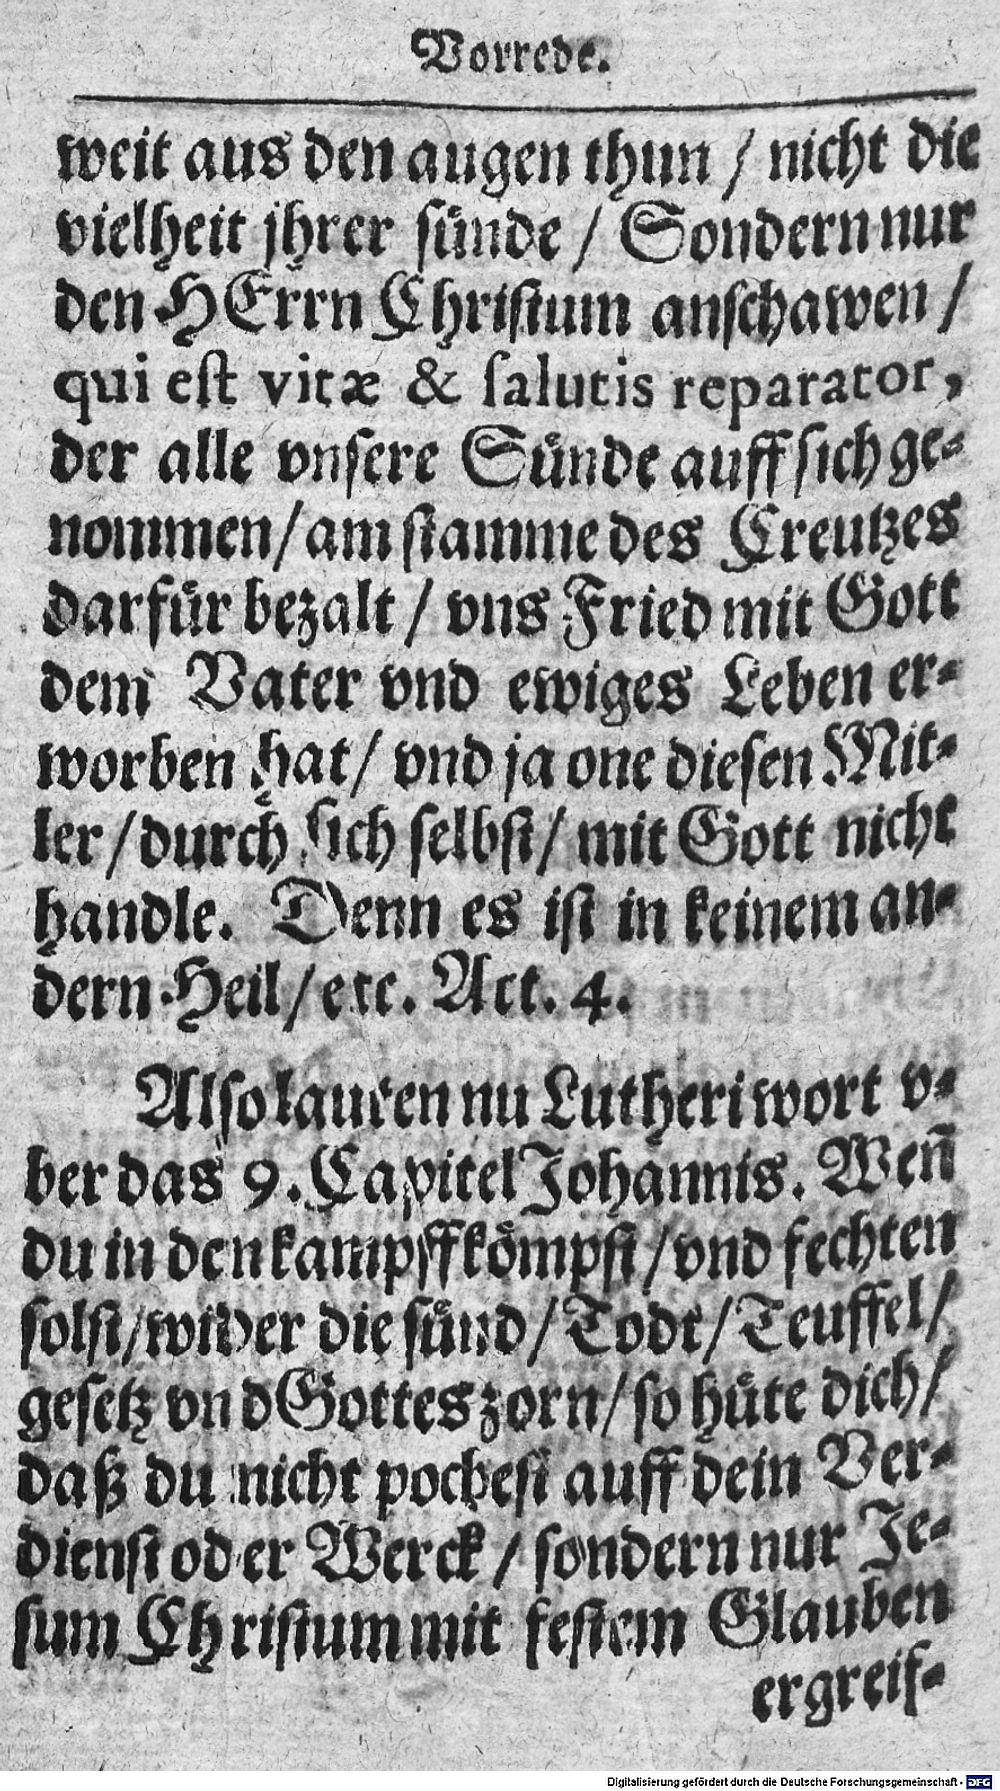 Vorrede.
weit aus den augen thun / nicht die
vielheit jhrer sünde / Sondern nur
den HErrn Christum anschawen /
qui est vitæ & salutis reparator,
der alle vnsere Sünde auff sich ge-
nommen / am stamme des Creutzes
darfür bezalt / vns Fried mit Gott
dem Vater vnd ewiges Leben er-
worben hat / vnd ja one diesen Mit-
ler / durch sich selbst / mit Gott nicht
handle. Denn es ist in keinem an-
dern Heil / etc. Act. 4.
Also lauten nu Lutheri wort v-
ber das 9. Capitel Johannis. Weñ
du in den kampff kömpst / vnd fechten
solst / wider die sünd / Todt / Teuffel /
gesetz vnd Gottes zorn / so hüte dich /
daß du nicht pochest auff dein Ver-
dienst oder Werck / sondern nur Je-
sum Christum mit festem Glauben
ergreif-
Digitalisierung gefördert durch die Deutsche Forschungsgemeinschaft - DFG